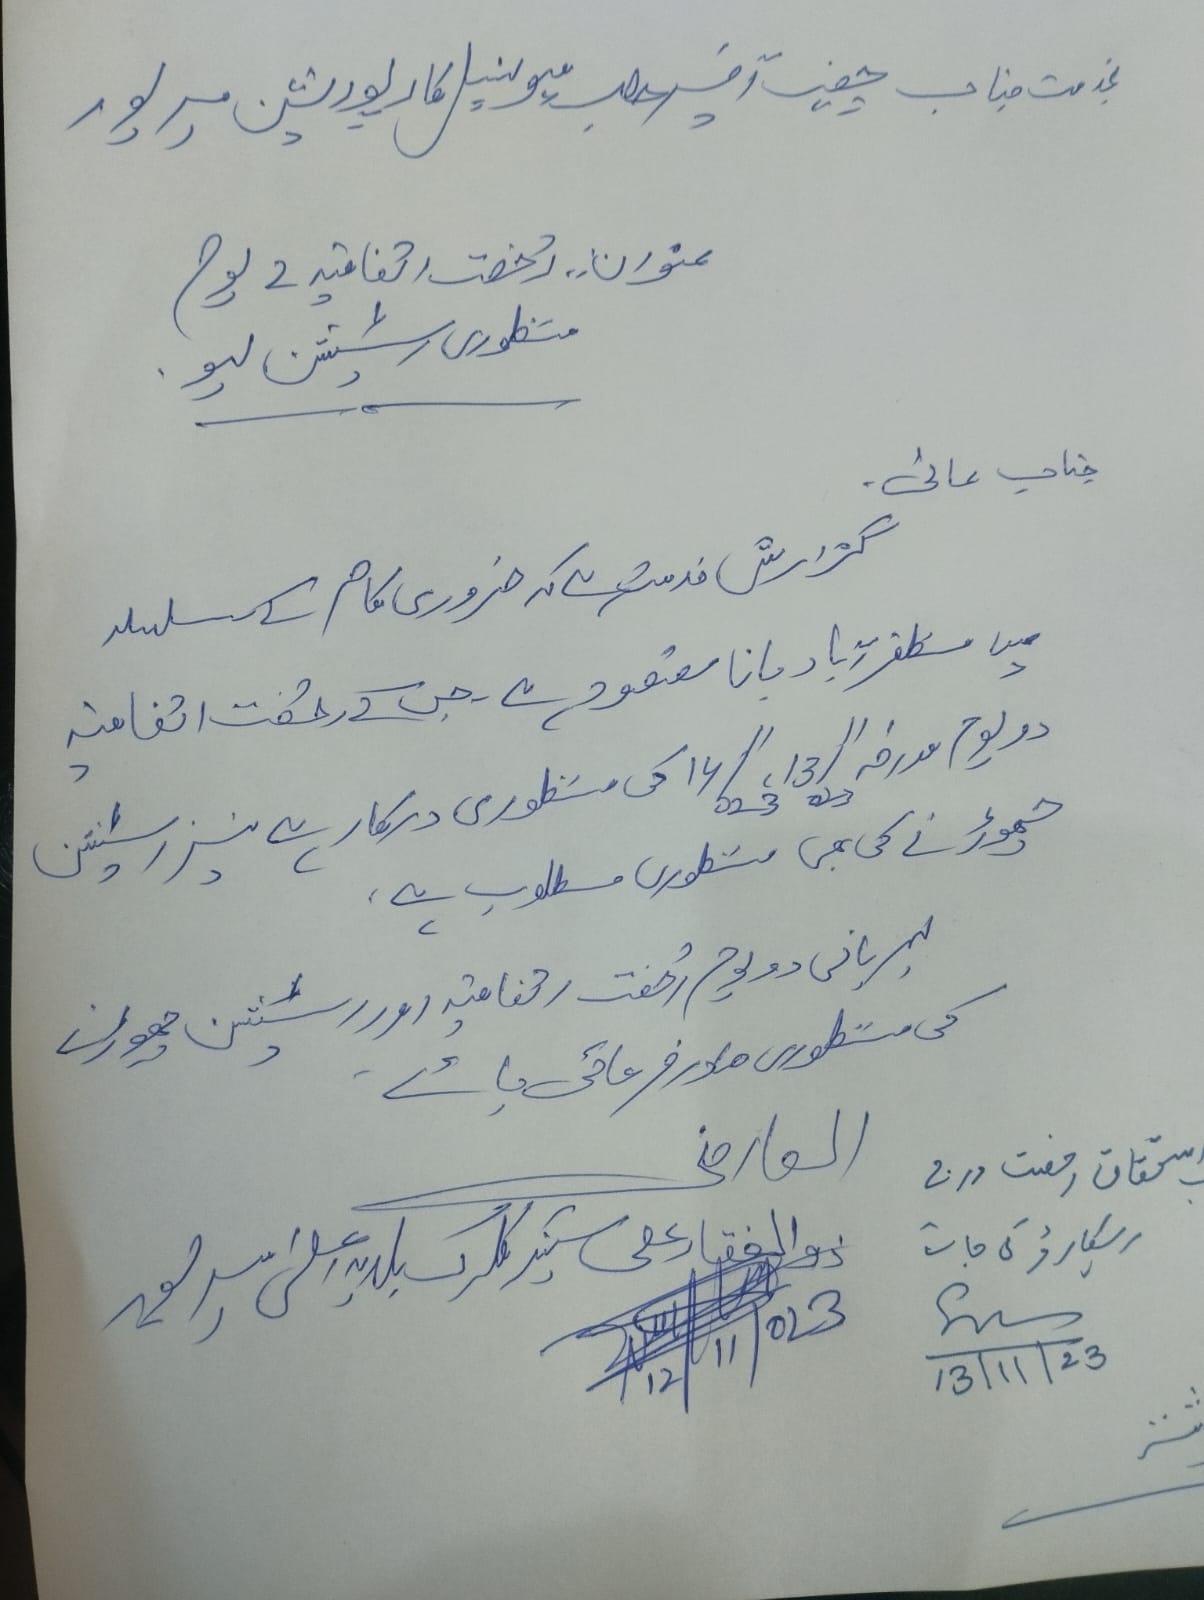 بخدمت جناب چیف آفیسر صاحب میونسپل کارپوریشن میرپور
عنوان:۔ رخصت اتفاقیہ 2 یوم
منظوری سٹیشن لیو۔
جناب عالیٰ۔
گزارش خدمت ہے کہ ضروری کام کے سلسلہ
میں مظفرآباد جانا مقصود ہے۔ جس کے رخصت اتفاقیہ
دو یوم مورخہ 13/11/023، 14/11/023 کی منظوری درکار ہے نیز سٹیشن
چھوڑنے کی بھی منظوری مطلوب ہے،
مہربانی دو یوم رخصت اتفاقیہ اور سٹیشن چھوڑنے
کی منظوری صادر فرمائی جائے۔
العارض
ذوالفقار علی سینئر کلرک بلدیہ اعلیٰ میرپور
12/11/023
استحقاق رخصت درج
ریکارڈ کی جائے
13/11/23